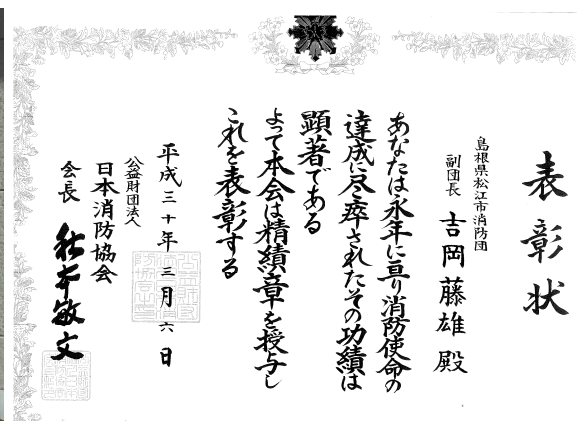 表彰状
島根県松江市消防団
副団長 吉岡藤雄 殿
あなたは永年に亘り消防使命の
達成に尽瘁されたその功績は
顕著である
よって本会は精績章を授与し
これを表彰する
平成三十年三月六日
公益財団法人
日本消防協会
会長 秋本敏文